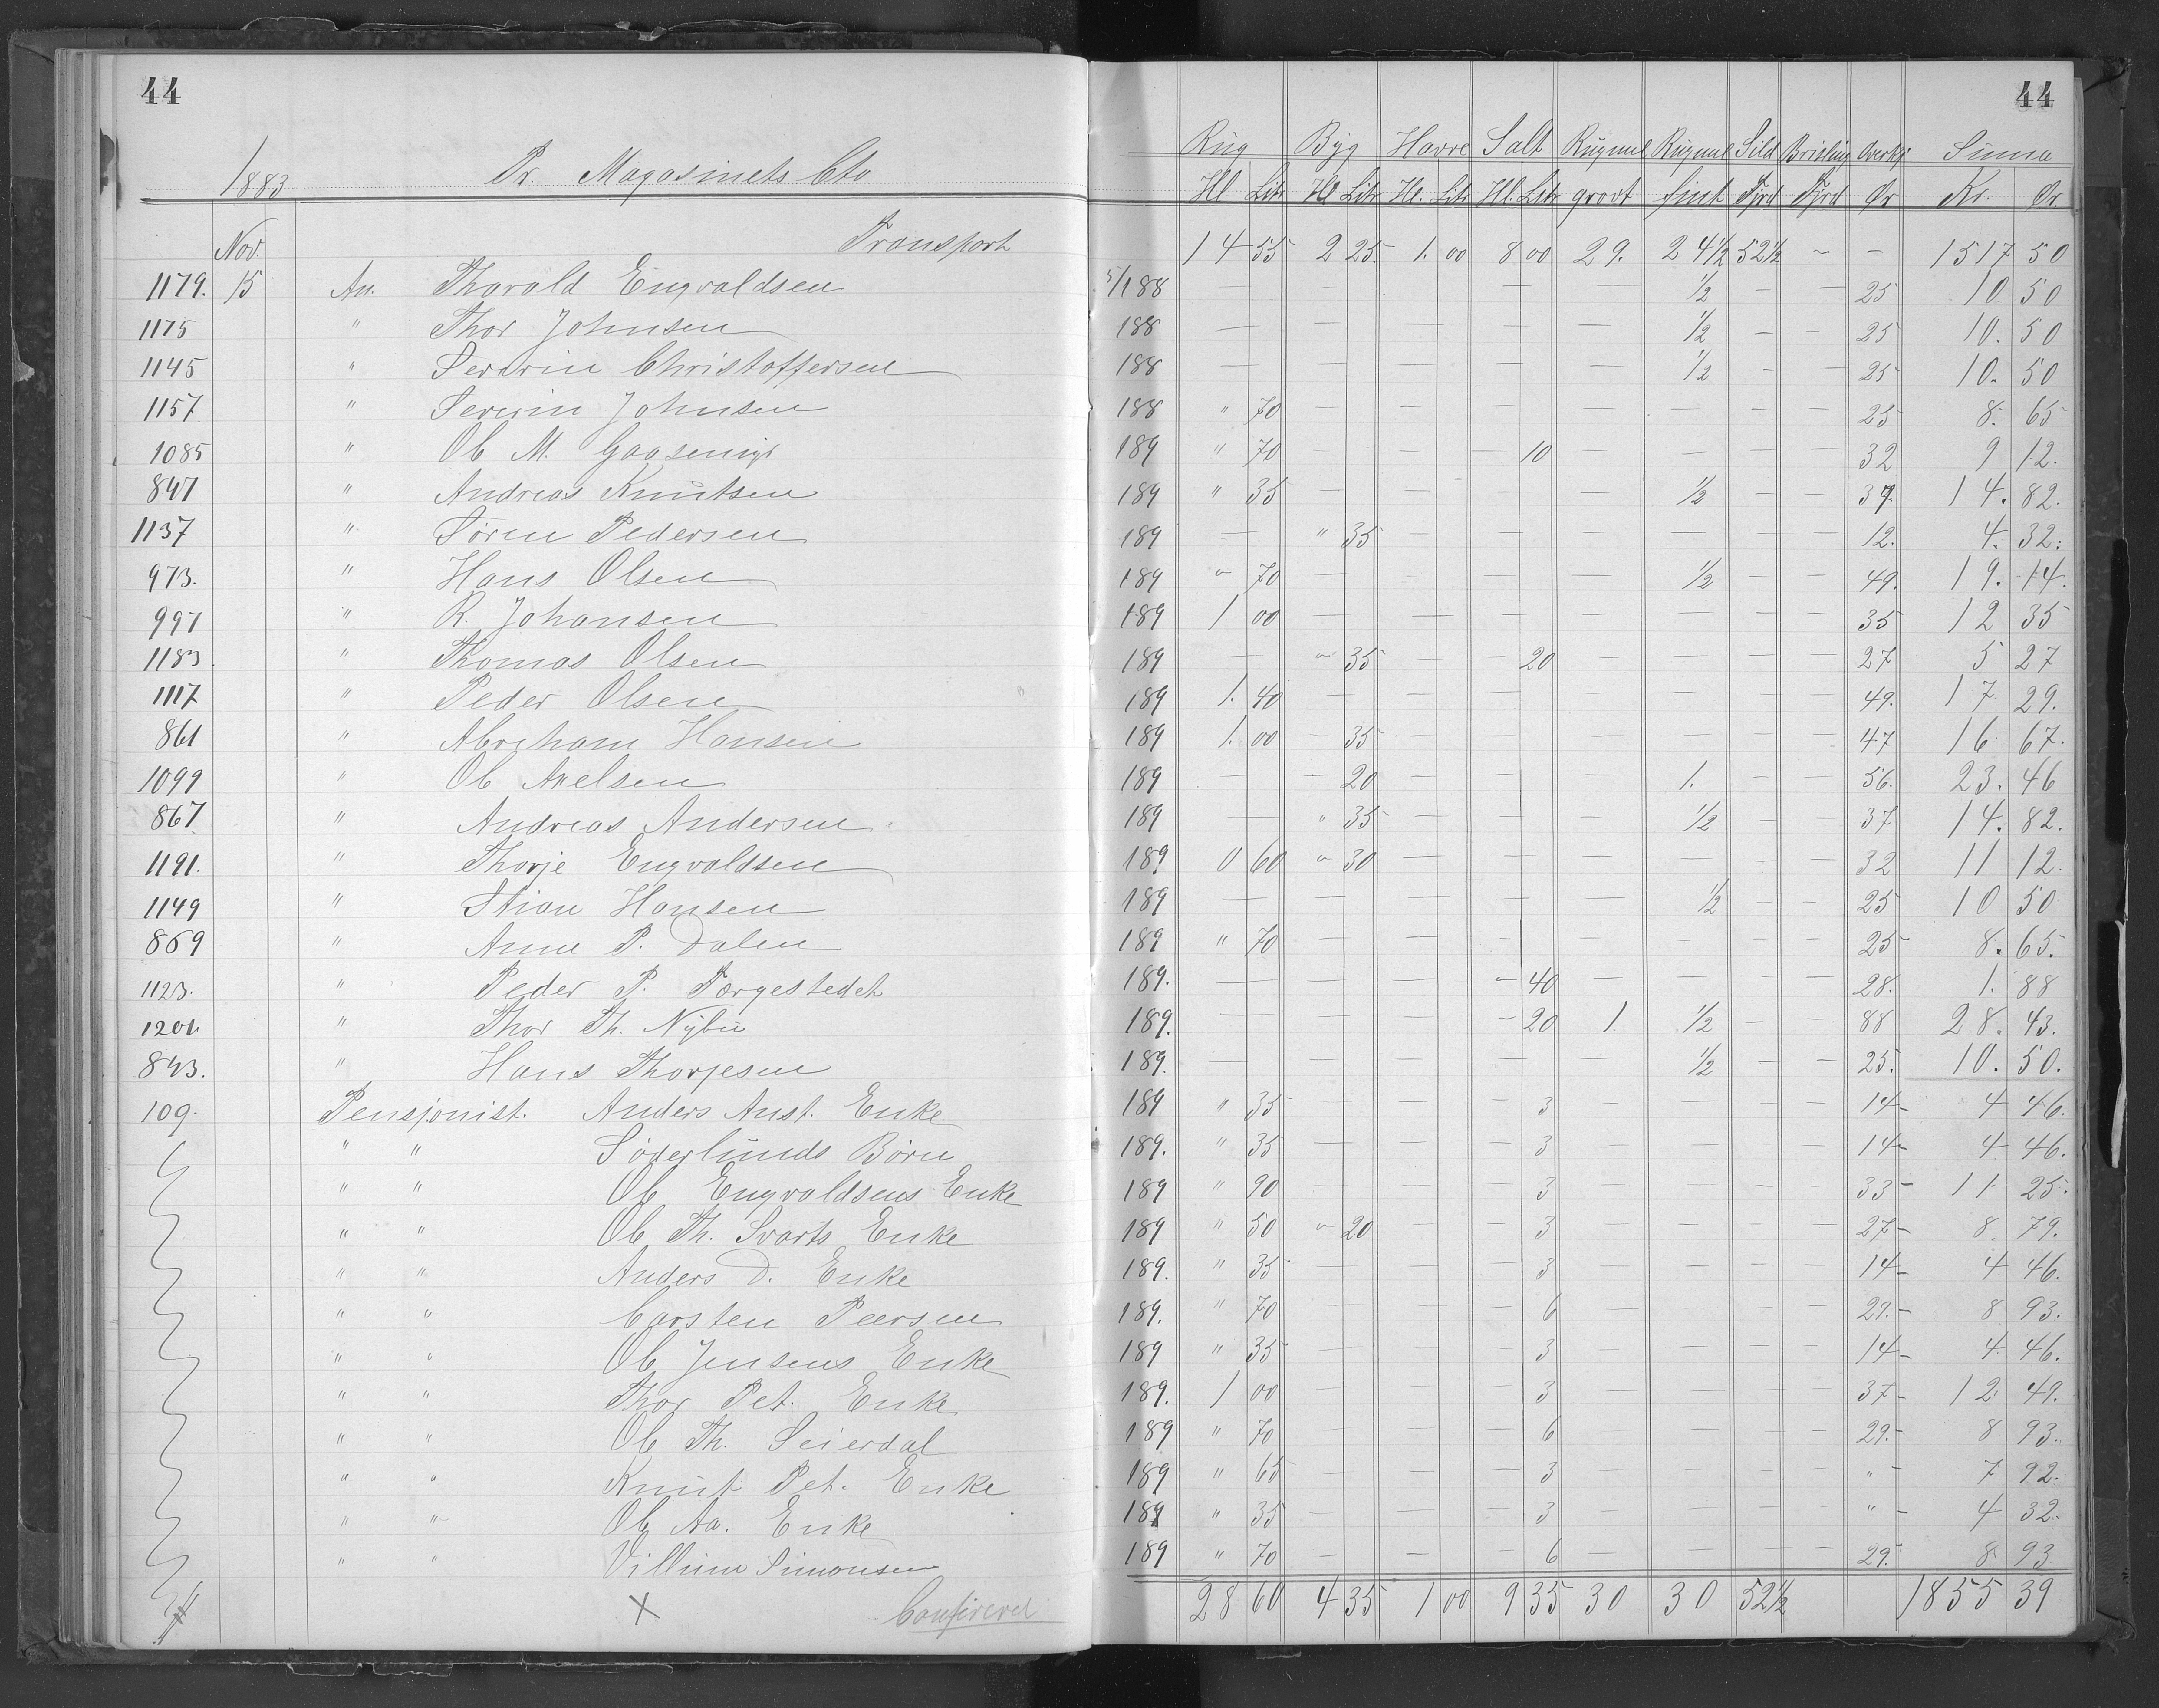 44 44
1883 Pr. Magasinets Cto Rug Byg Havre Salt Rugmel Rugmel Sild Brisling Overkj Suma
Hl Litr Hl Litr Hl. Litr Hl. Litr grovt fint Fjrd Fjrd Ør Kr. Ør.
Nov. Transport 14 55 2 25 1. 00 8 00 29. 24 1/2 52 1/2 - - 1517 50
1179. 15 An. Tharald Engvaldsen 5/1 88 — — — — 1/2 — — 25 10 50
1175 " Thor Johnsen 188 — — — — — 1/2 - - 25 10. 50
1145 " Severin Christoffersen 188 — — — — — 1/2 - — 25 10. 50
1157 " Severin Johnsen 188 " 70 — — — — — — — 25 8. 65
1085 " Ole M. Gaasemyr 189 " 70 — — 10 — — — — 32 9 12.
847 " Andreas Knutsen 189 " 35 — — — — 1/2 — — 37 14. 82.
1137 " Søren Pedersen 189 — " 35 — — — — — — 12. 4. 32.
973. " Hans Olsen 189 " 70 — — — — 1/2 — — 49. 19. 14.
997 " R. Johansen 189 1 00 — — — — — — — 35 12 35
1183. " Thomas Olsen 189 — " 35 — 20 — — — — 27 5 27
1117 " Peder Olsen 189 1. 40 — — — — — — — 49. 17 29.
861 " Abraham Hansen 189 1. 00 - 35 — — — — — — 47 16 67.
1099 " Ole Axelsen 189 — — 20 — — — 1. — — 56. 23. 46
867 " Andreas Andersen 189 — " 35 — — — 1/2 — — 37 14. 82.
1191. " Thorje Engvaldsen 189 0 60 " 30 — — — — — — 32 11 12.
1149 " Stian Hansen 189 — — — — — 1/2 — - 25 10 50
869 " Anne P. Dalen 189 " 70 — — — — — — — 25 8. 65.
1123. " Peder P. Torgestedet 189. — — — - 40 — — — — 28. 1. 88
1201. " Thor Th. Nybu 189. — — — - 20 1. 1/2 — — 88 28. 43.
843. " Hans Thorjesen 189. — — — — — 1/2 — — 25. 10. 50.
109. Pensjonist. Anders Aust. Enke 189 " 35 — — 3 — — — — 14 - 4 46.
" " Søderlunds Børn 189. " 35 — — 3 — — — — 14 - 4 46.
" " Ole Engvaldsens Enke 189 " 90 — — 3 — — — — 33 - 11 25.
" " Ole Th. Svarts Enke 189 " 50 " 20 — 3 — — — — 27 - 8. 79.
" " Anders D. Enke 189. " 35 — — 3 — — — — 14 - 4 46.
" " Carsten Peersen 189. " 70 — — 6 — — — — 29. - 8 93.
" " Ole Jensens Enke 189 " 35 — — 3 — — — — 14 - 4 46.
" " Thor Pet. Enke 189. 1 00 — — 3 — — — — 37 - 12 49.
" " Ole Th. Seierdal 189 " 70 — — 6 — — — — 29. - 8 93.
" " Knut Pet. Enke 189 " 65 — — 3 — — — — " - 7 92.
" " Ole Aa. Enke 189 " 35 — — 3 — — — — " - 4 32.
" " Villum Simonsen 189 " 70 — — 6 — — — — 29. 8 93
X Confereret 28 60 4 35 1 00 9 35 30 30 52 1/2 1855 39